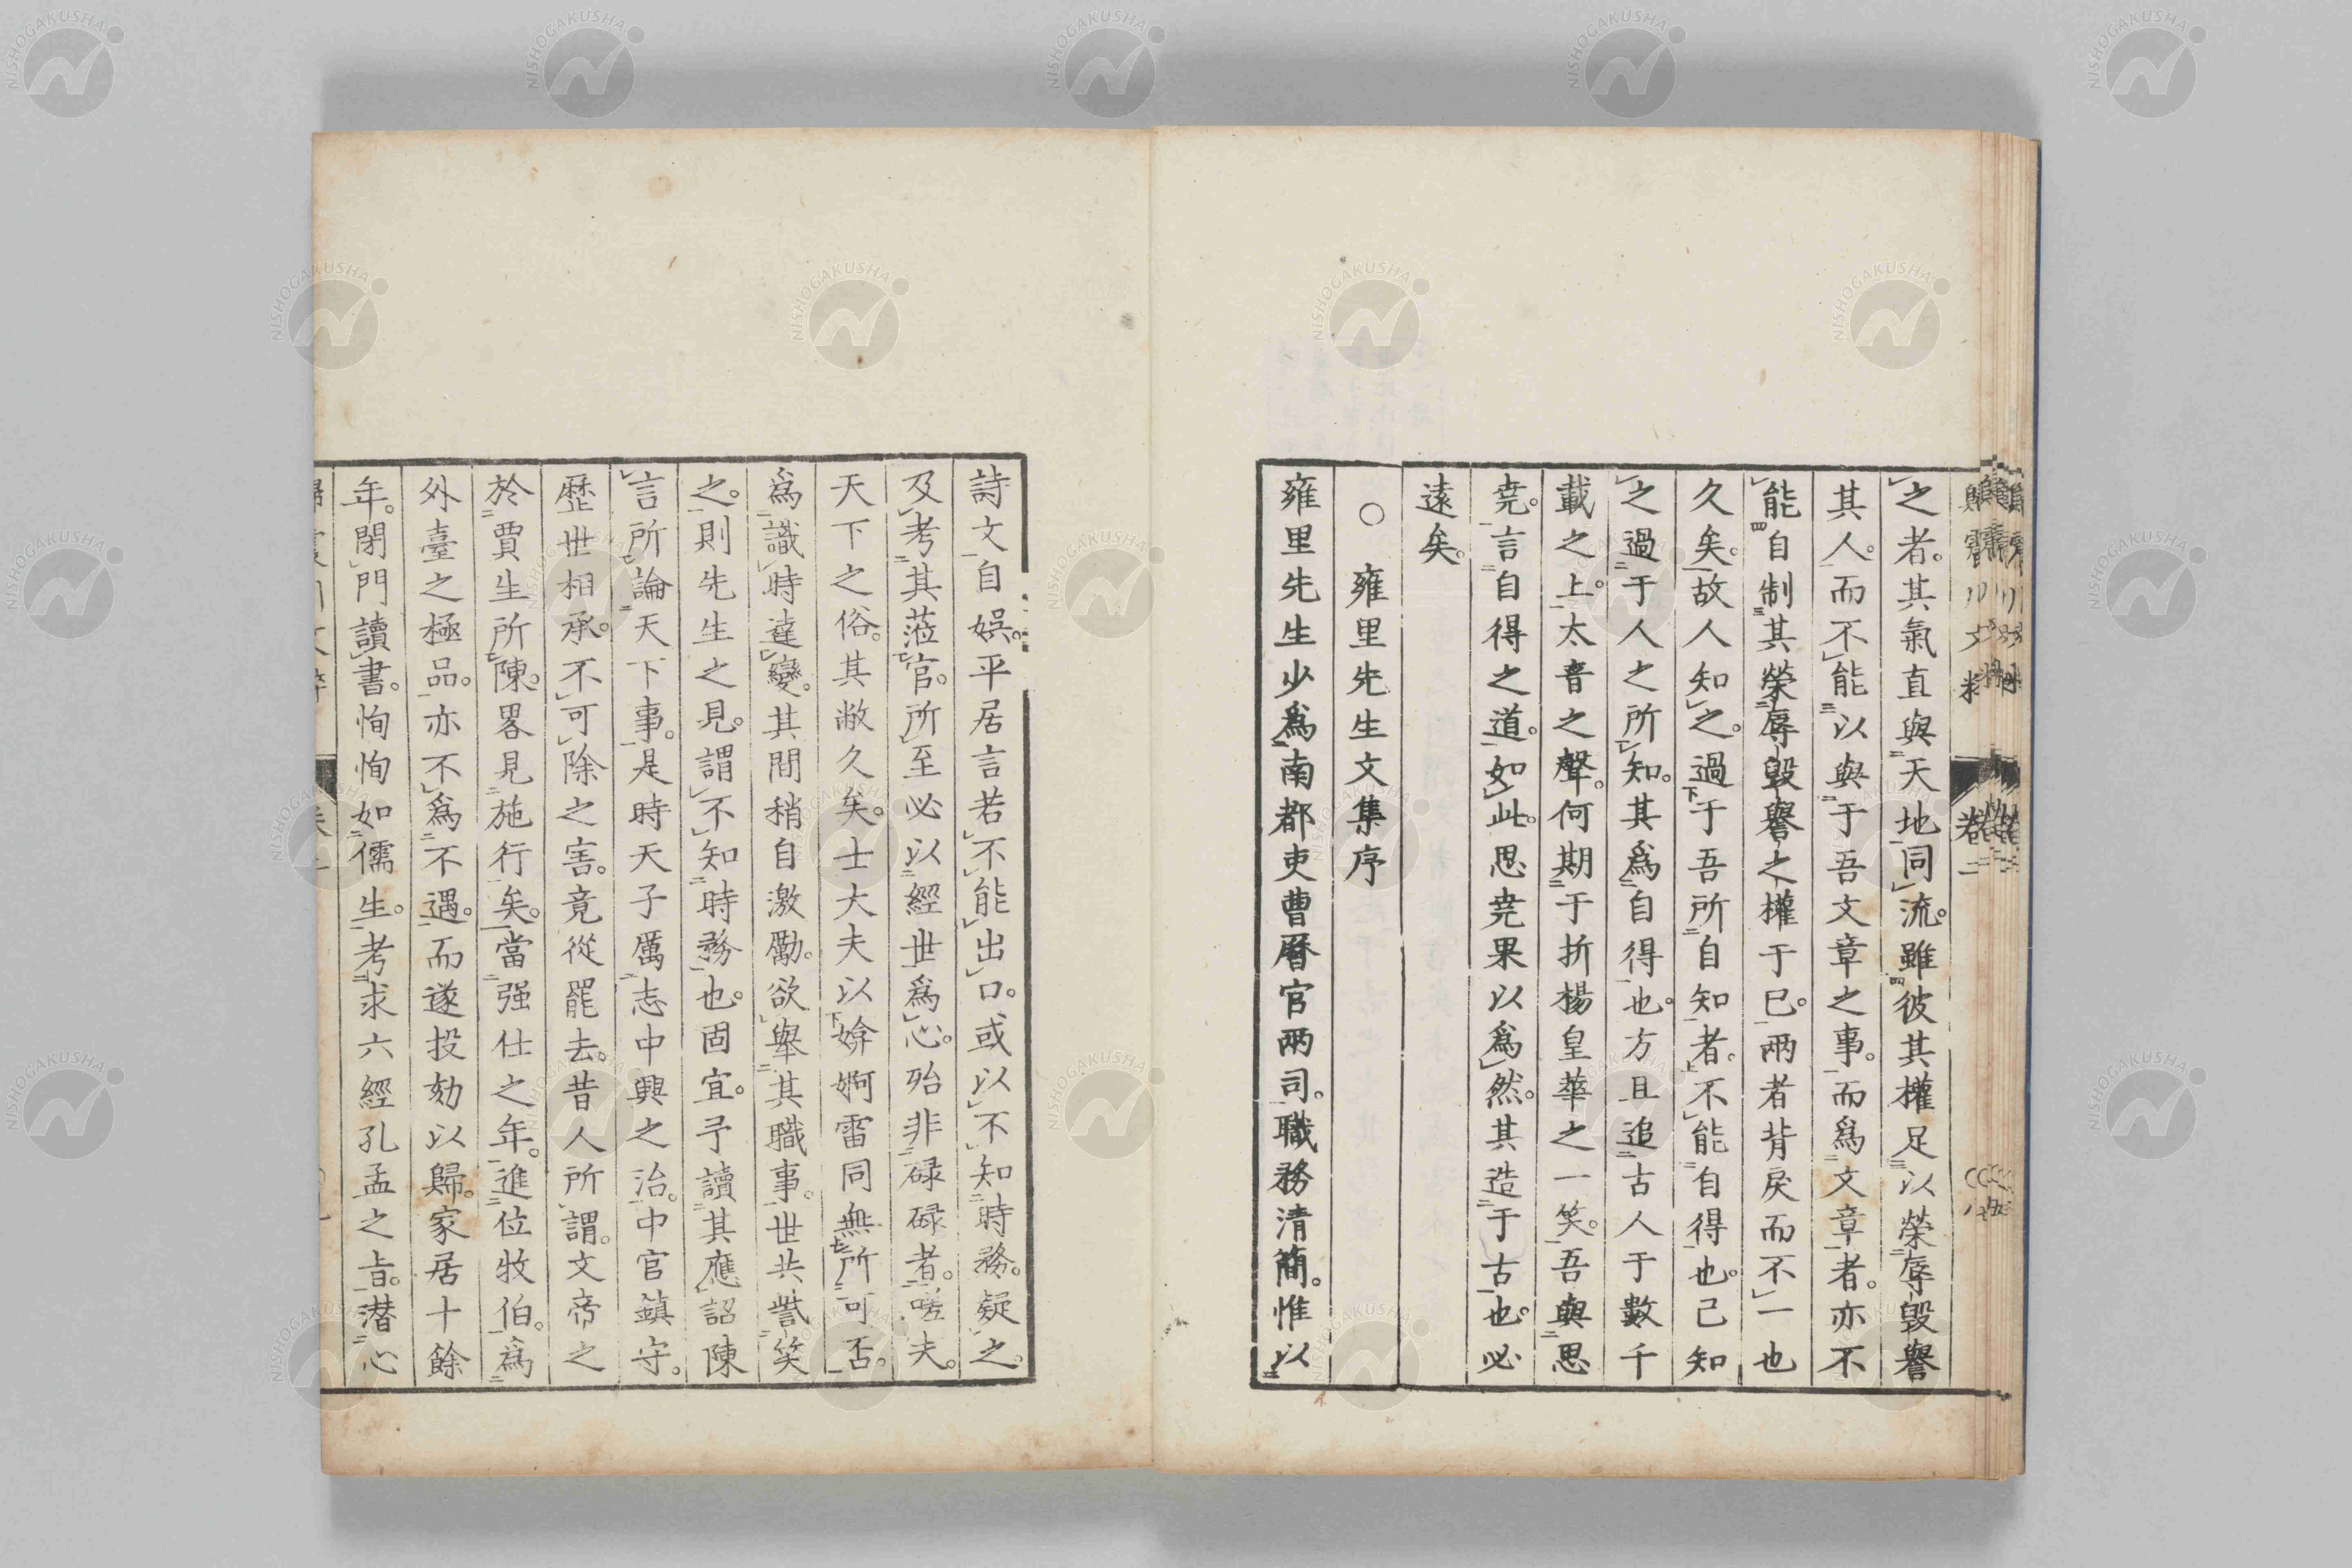 之者。其氣直與天地同流。雖彼其權足以榮辱毀譽
其人。而不能以與于吾文章之事。而爲文章者。亦不
能自制其榮辱毀譽之權于已。兩者背戾而不一也
久矣。故人知之。過于吾所自知者。不能自得也。己知
之過于人之所知。其爲自得也。方且追古人于數千
載之上。太音之聲。何期于折楊皇華之一笑。吾與思
堯。言自得之道。如此。思堯果以爲然。其造于古也。必
遠矣。
○雍里先生文集序
雍里先生少爲南都吏曹曆官兩司。職務清簡。惟以
詩文自娯。平居言若不能出口。或以不知時務。疑之。
及考其蒞官。所至必以經世爲心。殆非碌碌者。嗟夫。
天下之俗。其敝久矣。士大夫以媕婀雷同無所可否。
爲識時達變。其間稍自激勵。欲舉其職事。世共訾笑
之。則先生之見。謂不知時務也。固宜。予讀其應詔陳
言所論天下事。是時天子厲志中興之治。中官鎮守。
歷世相承。不可除之害。竟從罷去。昔人所謂。文帝之
於賈生所陳。畧見施行矣。當强仕之年。進位牧伯。爲
外臺之極品。亦不爲不遇。而遂投劾以歸。家居十餘
年。閉門讀書。恂恂如儒生。考求六經孔孟之旨。潜心
NISHOGAKUSHA